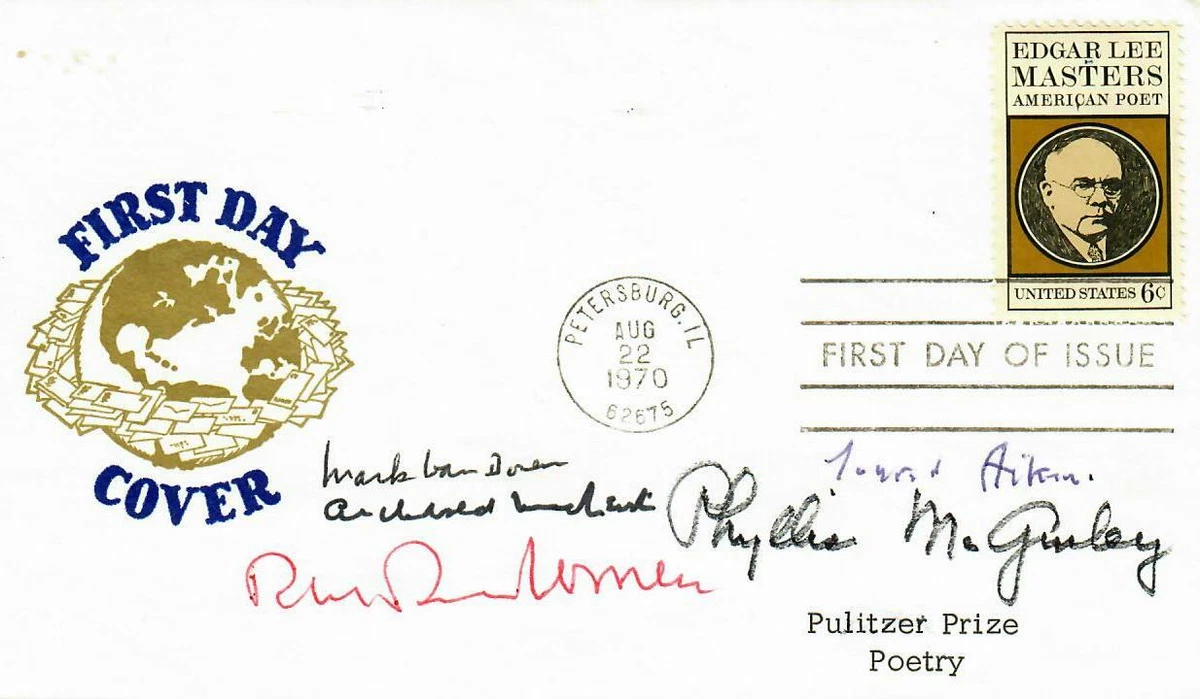 EDGAR LEE
MASTERS
AMERICAN POET
UNITED STATES 6c
FIRST DAY
COVER
PETERSBURG, IL
AUG
22
1970
62675
FIRST DAY OF ISSUE
Mark Van Doren
Archibald MacLeish
Conrad Aiken.
Phyllis McGinley
Pulitzer Prize
Poetry